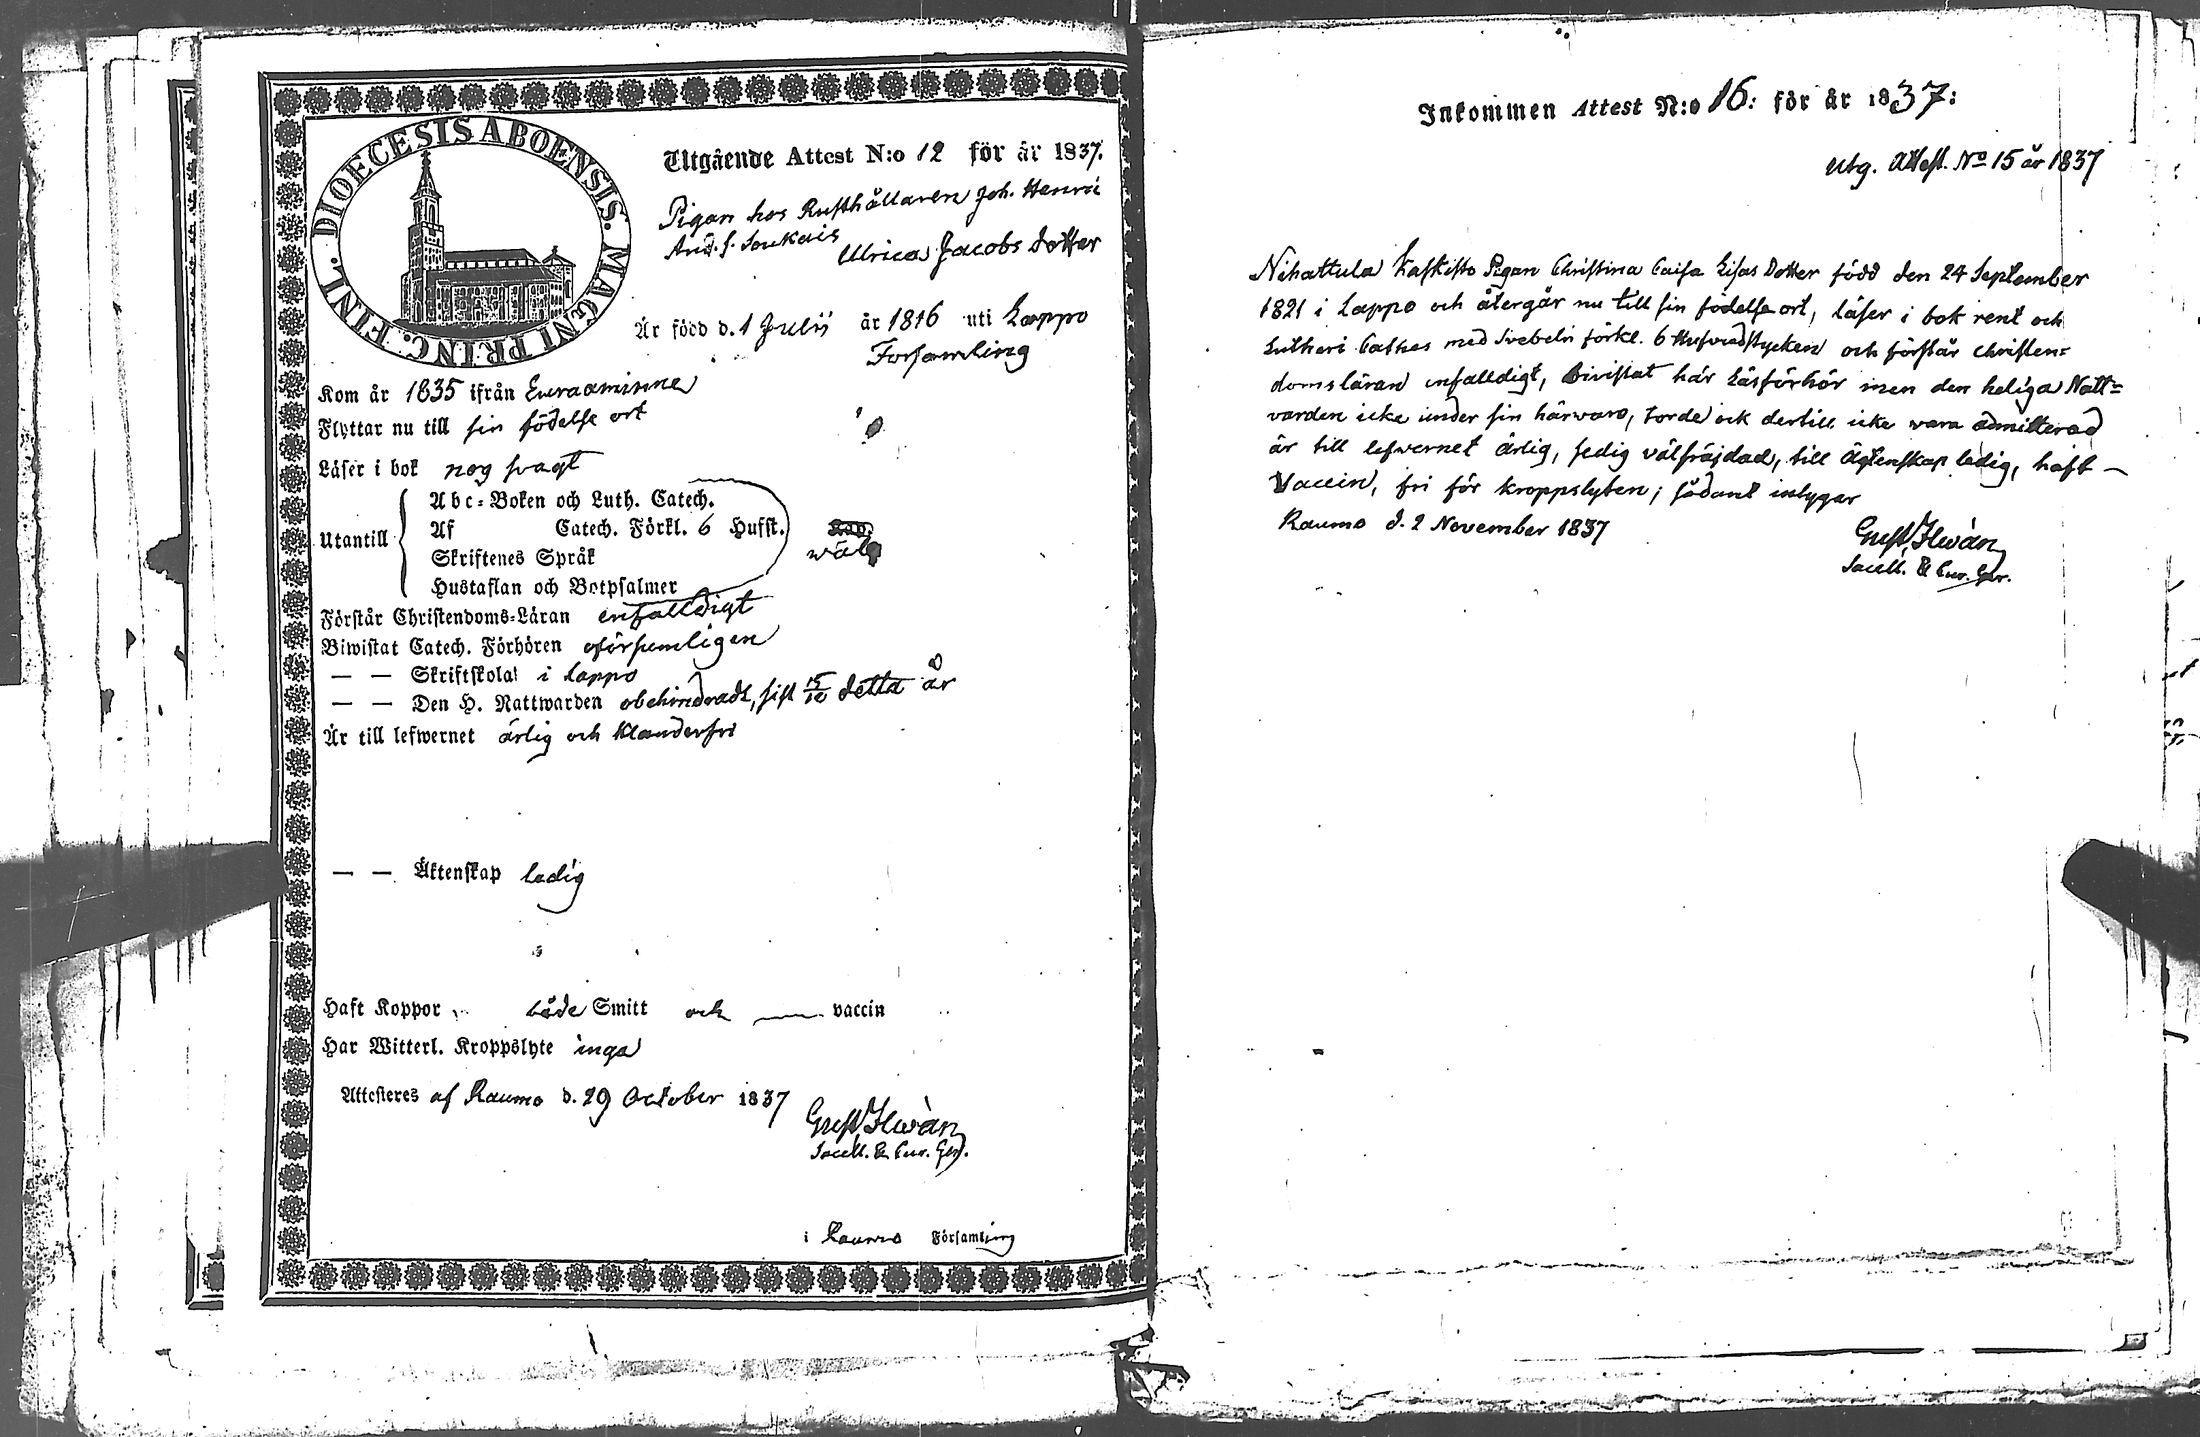 DIOECESIS ABOENSIS. MAGNI PRINC. FINL.
Utgående Attest N:o 12 för år 1837.
Pigan hos Rusthållaren Joh. Henric
And. s. Soukais
Ulrica Jacobs dotter
Är född d. 1 Julii år 1816 uti Lappo
Forsamling
Kom år 1835 ifrån Euraaminne
Flyttar nu till sin födelse ort
Läser i bok nog svagt
Utantill
Abc-Boken och Luth. Catech.
Af Catech. Förkl. 6 Hufst.
Skriftenes Språk
Hustaflan och Botpsalmer
wäl
Förstår Christendoms-Läran enfalldigt
Biwistat Catech. Förhören oförsumligen
— — Skriftskola i Lappo
— — Den H. Nattwarden obehindradt, sist 15/10 detta år
Är till lefwernet ärlig och klanderfri
— — Äktenskap ledig
Haft Koppor både Smitt och vaccin
Har Witterl. Kroppslyte inga
Attesteres af Raumo d. 29 October 1837
Gust. Ilwàn
Sacell. & Cur. Ger.
i Raumo Församling
Inkommen Attest N:o 16: för år 1837:
Utg. Attest. No 15 år 1837
Nihattula Kaskisto Pigan Christina Caisa Lisas Dotter född den 24 September
1821 i Lappo och återgår nu till sin födelse ort, läser i bok rent och
Lutheri Cathes med Svebelii förkl. 6 Hufvudstycken och förstår christen=
domsläran enfalldigt, Bivistat här Läsförhör men den heliga Natt=
varden icke under sin härvaro, torde ock dertill icke vara admitterad
är till lefwernet ärlig, sedig välfräjdad, till Ägtenskap ledig, haft —
Vaccin, fri för kroppslyten; sådant intygar
Raumo d. 2 November 1837
Gust. Ilwàn
Sacell. & Cur. Ger.